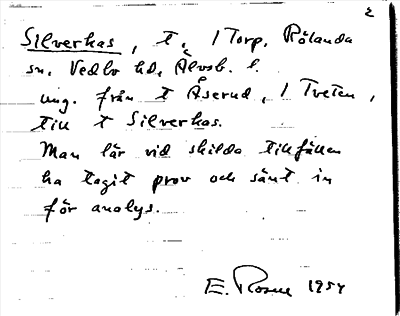 2
Silverkas, t. / Torp. Rölanda
sn. Vedbo hd, Älvsb. l.
ung. från t Åserud, / Tveten,
till t Silverkas.
Man lär vid skilda tillfällen
ha tagit prov och sänt in
för analys.
E. Rosne 1954